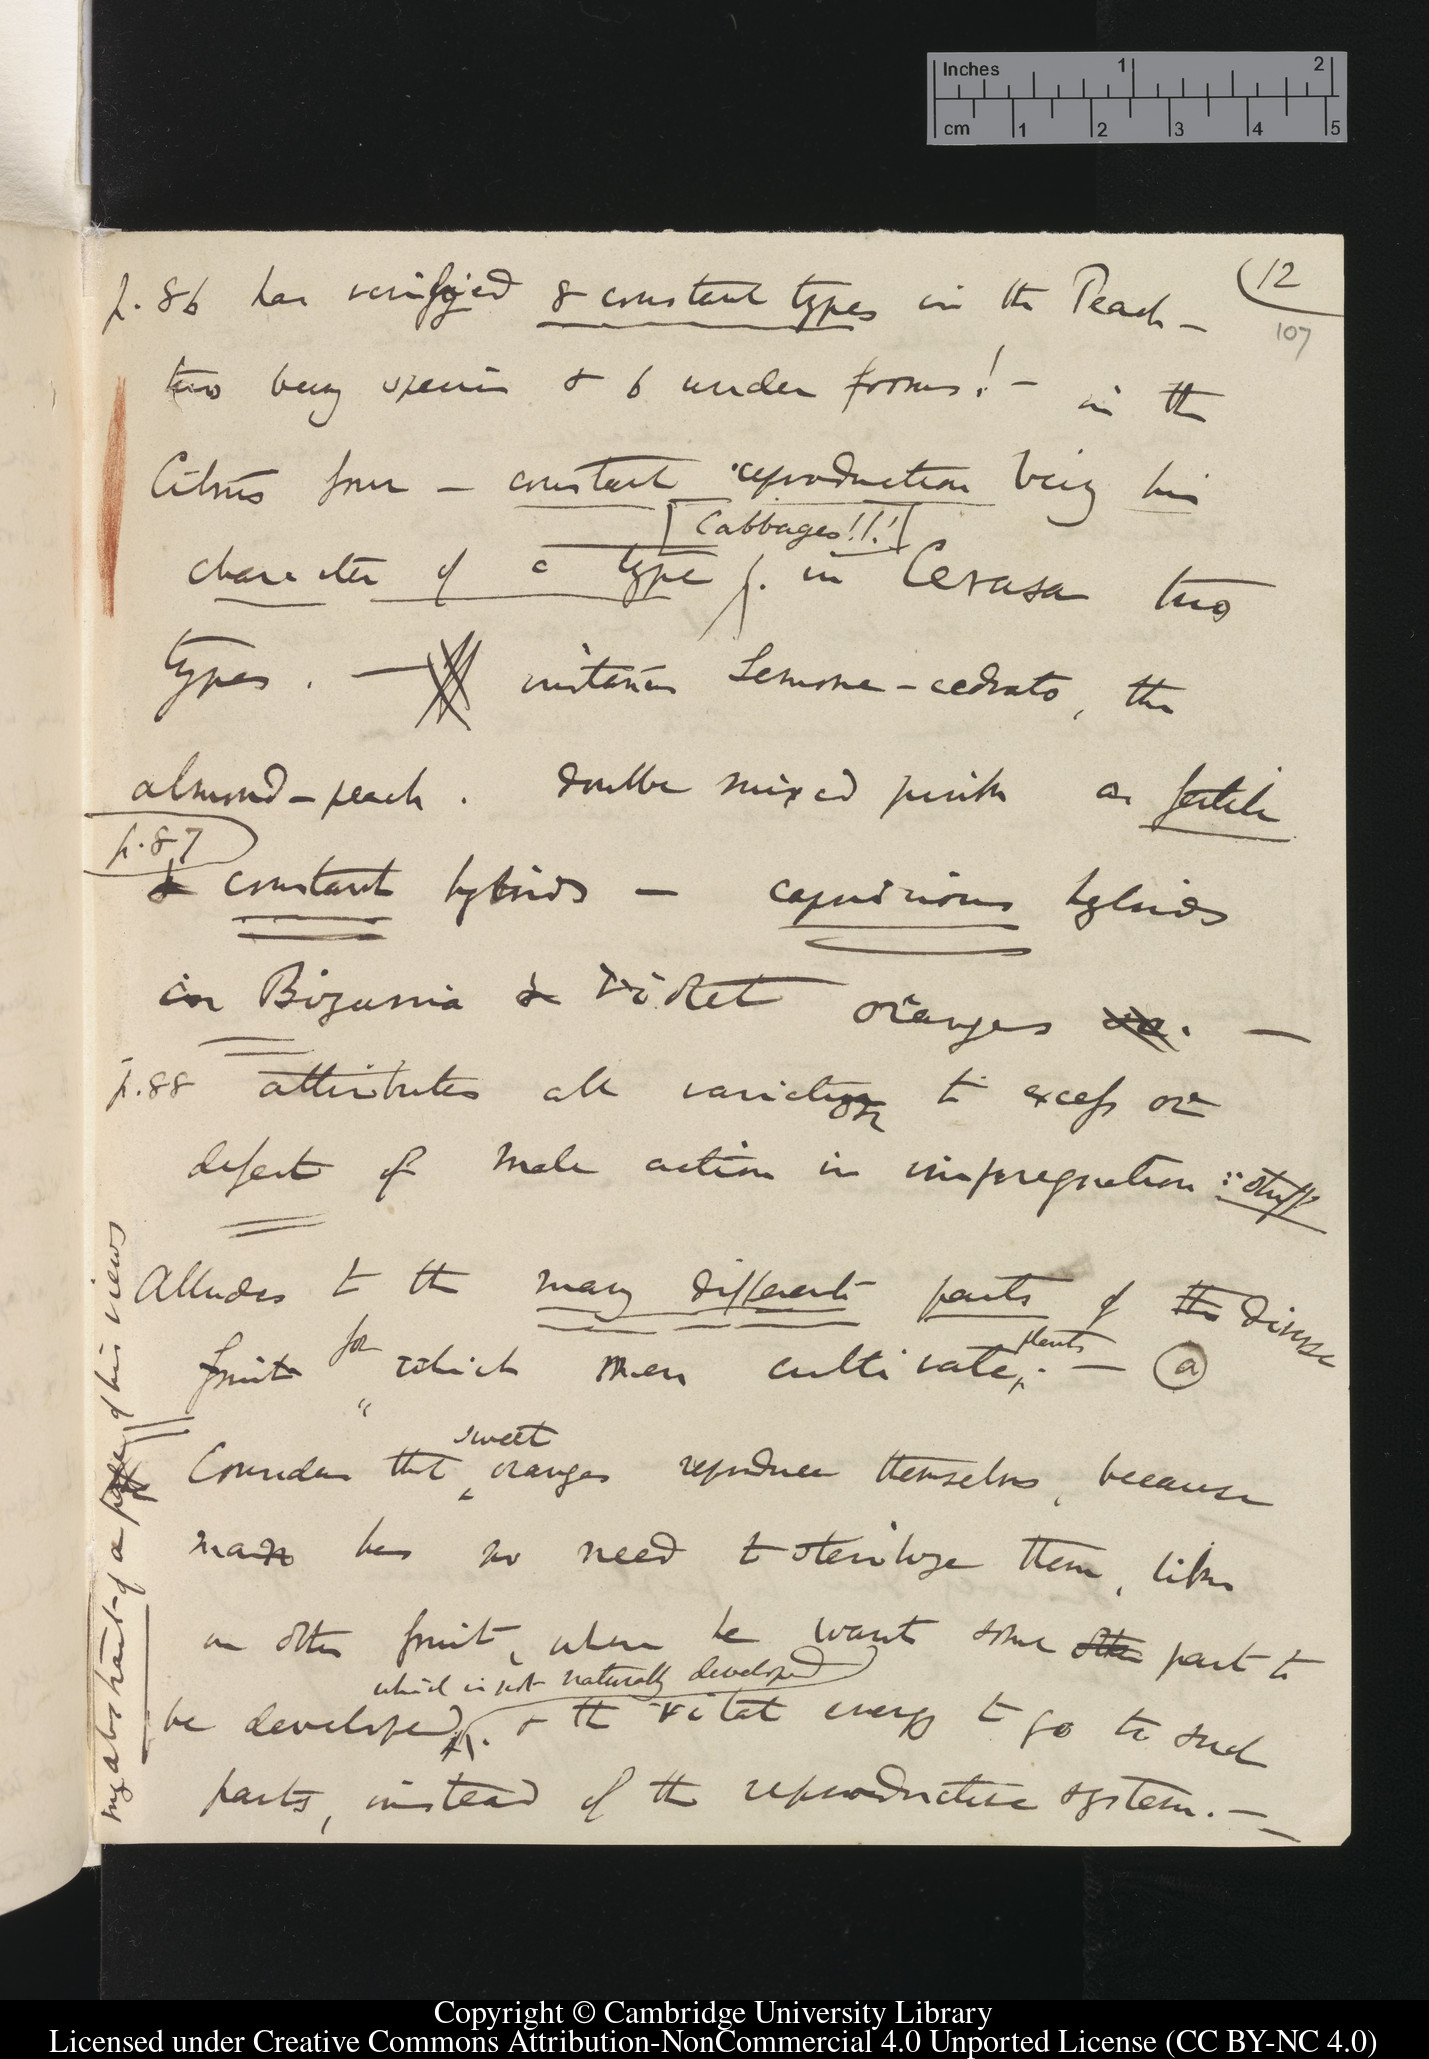 Inches 1 2
cm 1 2 3 4 5
12
107
p. 86 has verified 8 constant types in the Peach —
two being species & 6 under forms! — in the
Citrus four — constant reproduction being his
[Cabbages!!!]
character of a type. in Cerasa two
types. — instances Lemone-cedrato, the
almond-peach. double mixed pinks as fertile
p. 87
& constant hybrids — capricious hybrids
in Bizarria & Violet oranges. —
p. 88 attributes all variation to excess or
defect of male action in impregnation :: stuff
Alludes to the many different parts of the diverse
fruits for which men cultivate plants. — (a)
Considers that sweet oranges reproduce themselves, because
man has no need to sterilize them, like
in other fruit, where he wants some other part to
which is not naturally developed
be developed. & the vital energy to go to such
parts, instead of the reproductive system. —
my abstract of a of his views
Copyright © Cambridge University Library
Licensed under Creative Commons Attribution-NonCommercial 4.0 Unported License (CC BY-NC 4.0)